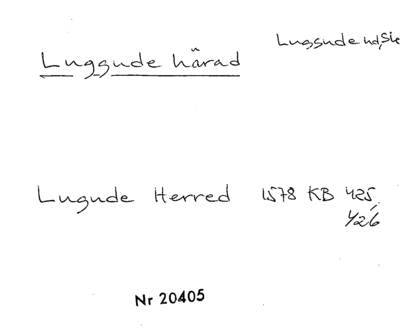 Luggude härad
Luggude hd, Sk
Lugude Herred 1578 KB 425,
426
Nr 20405